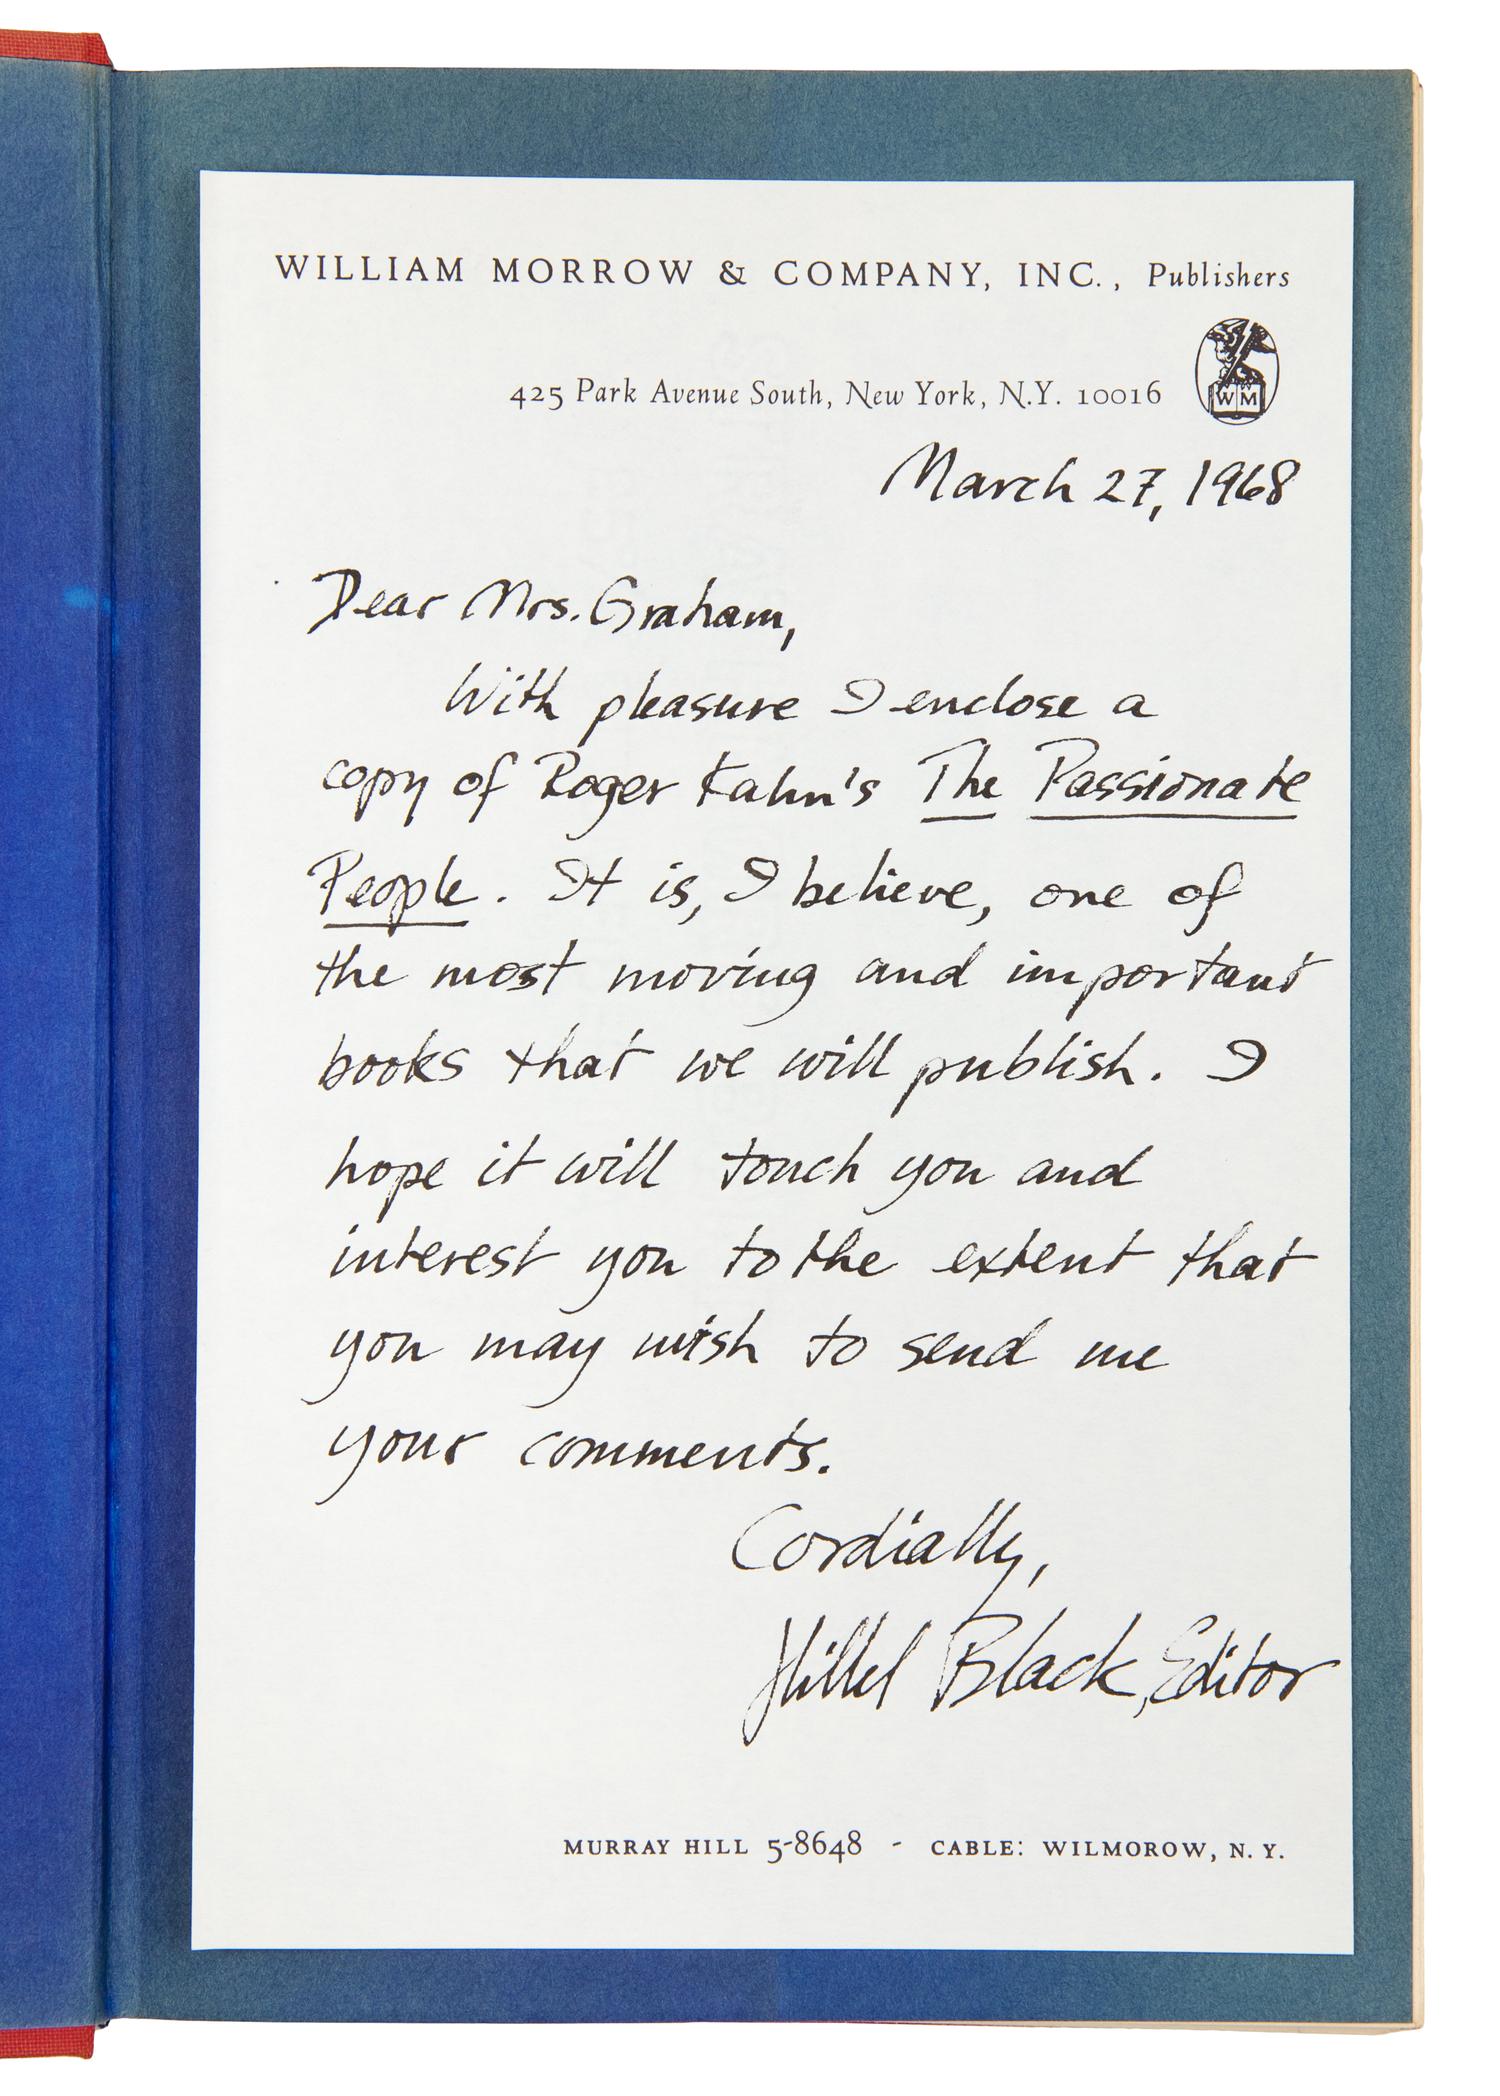 WILLIAM MORROW & COMPANY, INC., Publishers
425 Park Avenue South, New York, N.Y. 10016
W M
March 27, 1968
Dear Mrs. Graham,
With pleasure I enclose a
copy of Roger Kahn's The Passionate
People. It is, I believe, one of
the most moving and important
books that we will publish. I
hope it will touch you and
interest you to the extent that
you may wish to send me
your comments.
Cordially,
Hillel Black, Editor
MURRAY HILL 5-8648 - CABLE: WILMOROW, N. Y.